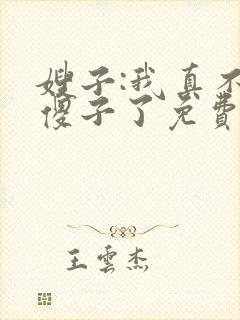 嫂子:我真不
傻子了免费
王雲杰